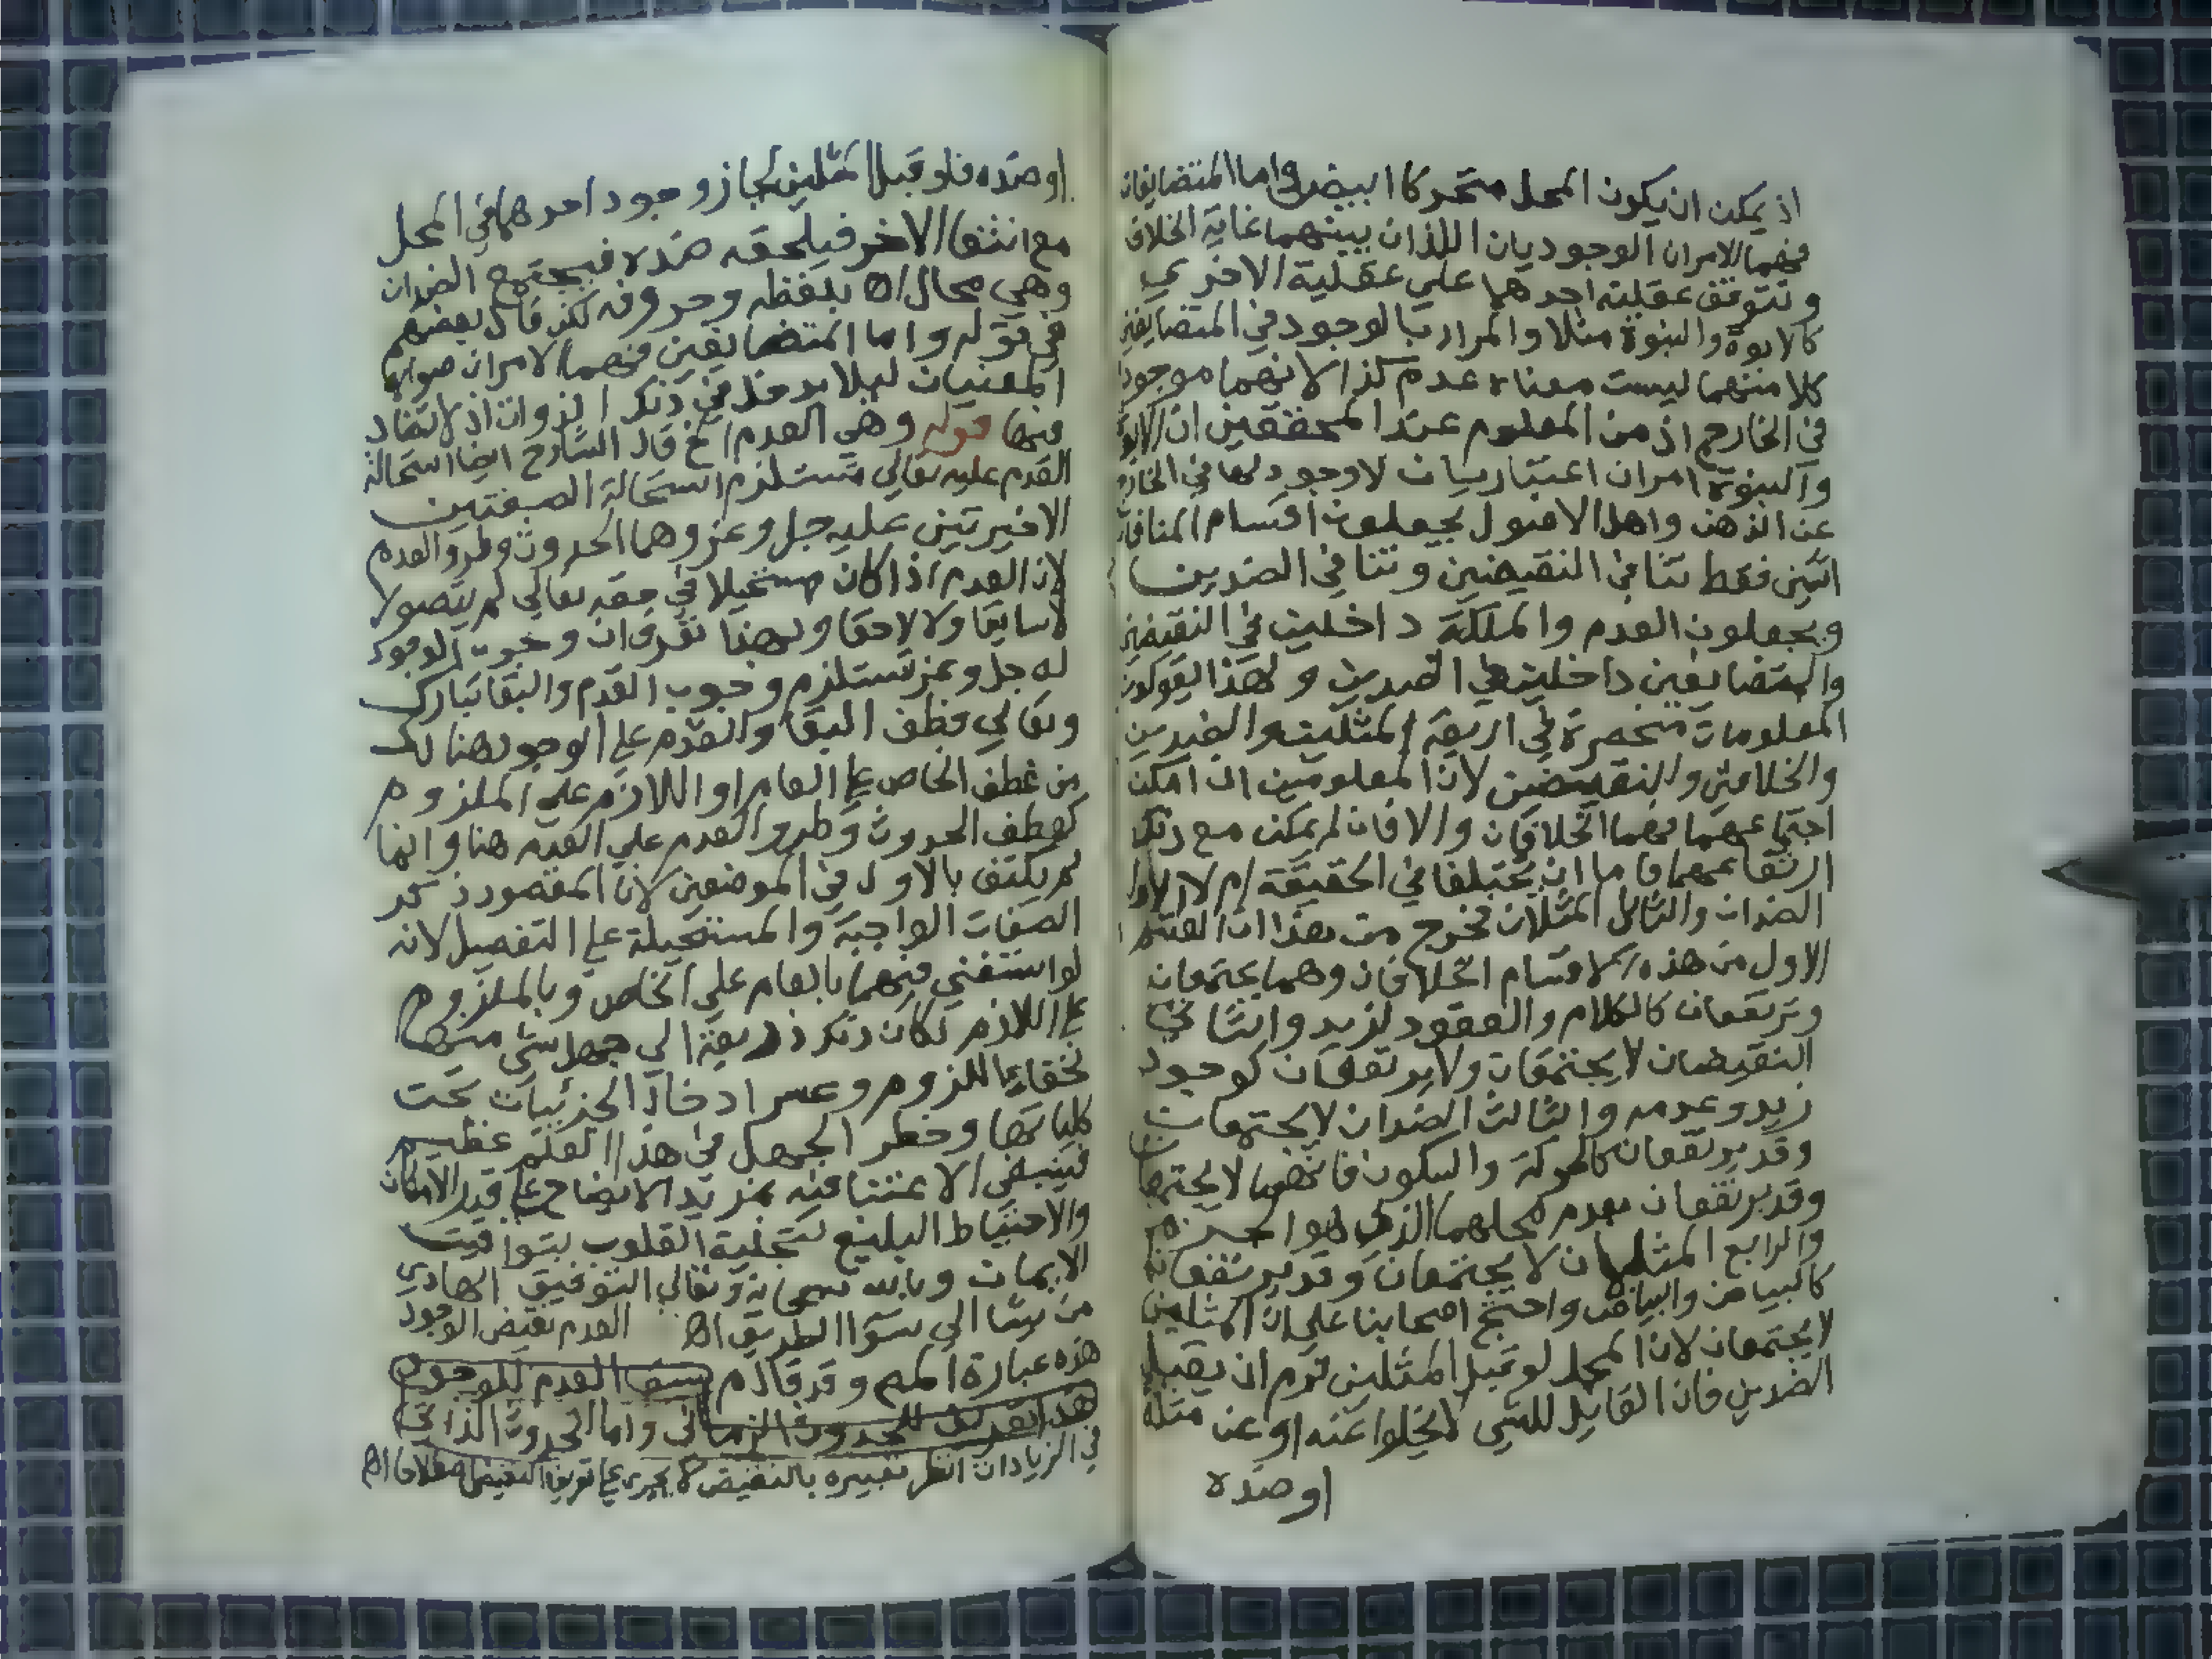 اذ يمكن ان يكون المحل متحركا ابيض واما المتضايفان
فهما الامران الوجوديان اللذان بينهما غاية الخلاف
وتتوقف عقلية احدهما على عقلية الاخري
كالابوة والبنوة مثلا والمراد بالوجود في المتضايفين
كلا منهما ليست معناه عدم كذا لا انهما موجودا
في الخارج اذ من المعلوم عند المحققين ان الابوة
والبنوة امران اعتباريان لا وجود لهما في الخارج
عن الذهن واهل الاصول يجعلون اقسام المنافات
اثنين فقط تنافي النقيضين وتنافي الضدين
ويجعلون العدم والملكة داخلين في النقيضين
والمتضايفين داخلين في الضدين ولهذا يقولون
المعلومات منحصرة في اربعة المثلين والضدين
والخلافين والنقيضين لان المعلومين ان امكن
اجتماعهما فهما الخلافان والا فان لم يمكن مع ذلك
ارتفاعهما فاما ان يختلفا في الحقيقة ام لا الاول
الضدان والثاني المثلان فخرج من هذا ان القسم
الاول من هذه الاقسام الخلافان وهما يجتمعان
ويرتفعان كالكلام والقعود لزيد والثاني
النقيضان لا يجتمعان ولا يرتفعان كوجود
زيد وعدمه والثالث الضدان لا يجتمعان
وقد يرتفعان كالحركة والسكون فانهما لا يجتمعان
وقد يرتفعان بعدم محلهما الذي هو الجرم
والرابع المثلان لا يجتمعان وقد يرتفعان
كالبياض والبياض واحتج اصحابنا على ان المثلين
لا يجتمعان لان المحل لو قبل المثلين لزم ان يقبل
الضدين فان القابل للشي لا يخلوا عنه او عن مثله
او ضده
او ضده فلو قبل المثلين لجاز وجود احدهما في المحل
مع انتفا الاخر فيلحقه ضده فيجتمع الضدان
وهي محال اه بلفظه وحروفه لكن قال بعضهم
في قوله واما المتضايفين فهما الامران صوابه
المعنيان ليلا يدخل في ذلك الذوات اذ لا تضاد
فيها قوله وهي العدم الخ قال الشارح ايضا استحالة
القدم عليه تعالي تستلزم استحالة الصفتين
الاخيرتين عليه جل وعز وهما الحدوث وطرو العدم
لان العدم اذا كان مستحيلا في حقه تعالي لم يتصولا
لا سابقا ولا لاحقا وبهذا تعرف ان وجوب الوجود
له جل وعز تستلزم وجوب القدم والبقا تبارك
وتعالي فظف البقا والقدم على الوجود هنا لك
من عطف الخاص على العام او اللازم على الملزوم
كعطف الحدوث وطرو العدم على العدم هنا وانما
لم يكتف بالاول في الموضعين لان المقصود ذكر
الصفات الواجبة والمستحيلة على التفصيل لانه
لو استغني فيهما بالعام على الخاص وبالملزوم
على اللازم لكان ذلك ذريعة الي جهل شي منها
لخفا اللزوم وعسر ادخال الجزئيات تحت
كلياتها وخطر الجهل في هذا العلم عظيم
فينبغي الاعتنا فيه بمزيد الايضاح على قدر الامكان
والاحتياط البليغ لتحلية القلوب بيواقيت
الايمان وبالله سبحانه وتعالي التوفيق الهادي
من يشا الي سوا الطريق اه العدم نقيض الوجود
هذه عبارة المم وقد قال م سبق العدم للوجود
هذا تعريف للحدوث الزماني واما الحدوث الذاتي
في الزيادات انظر تعبيره بالنقيض لا يجري على تعريف النقيض